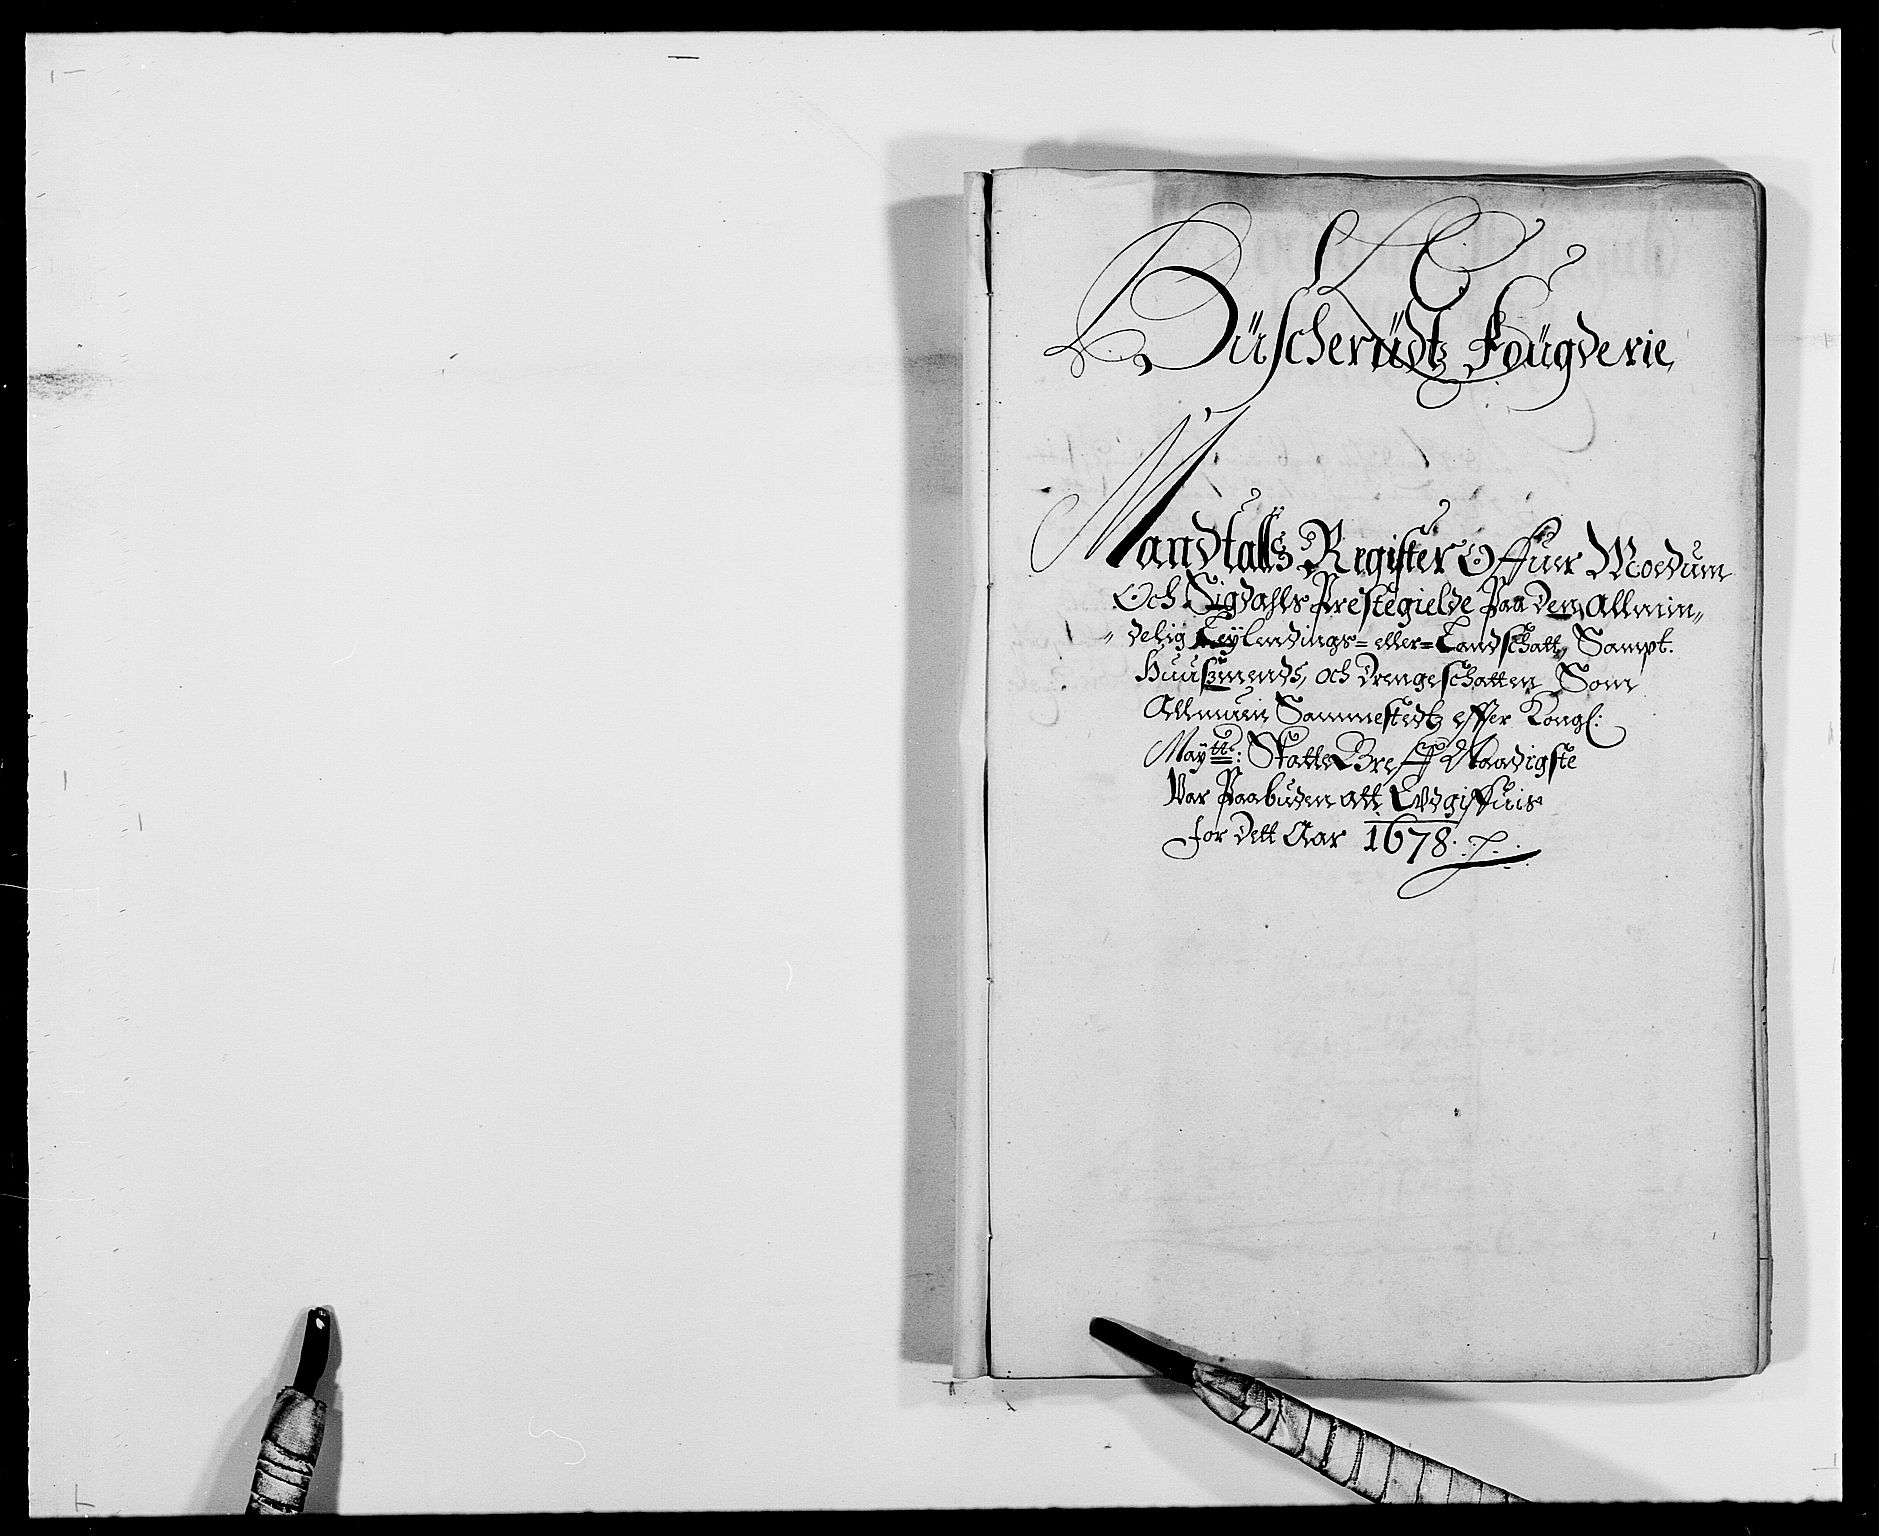 Büscherüdtz Fougderie
Mandtalls Register Offuer Moedum
Och Sigdahls Prestegielde Paa Den Allmin„
„delig Leÿlendings= eller= Landschatt, Sampt.
Huuszmends, och Drengeschatten Som
Allmuen Sammestedtz effter Kongl:
Maÿtts: Skatte Breff Naadigste
Var Paabuden att Udgiffuis
for Dett Aar 1678.